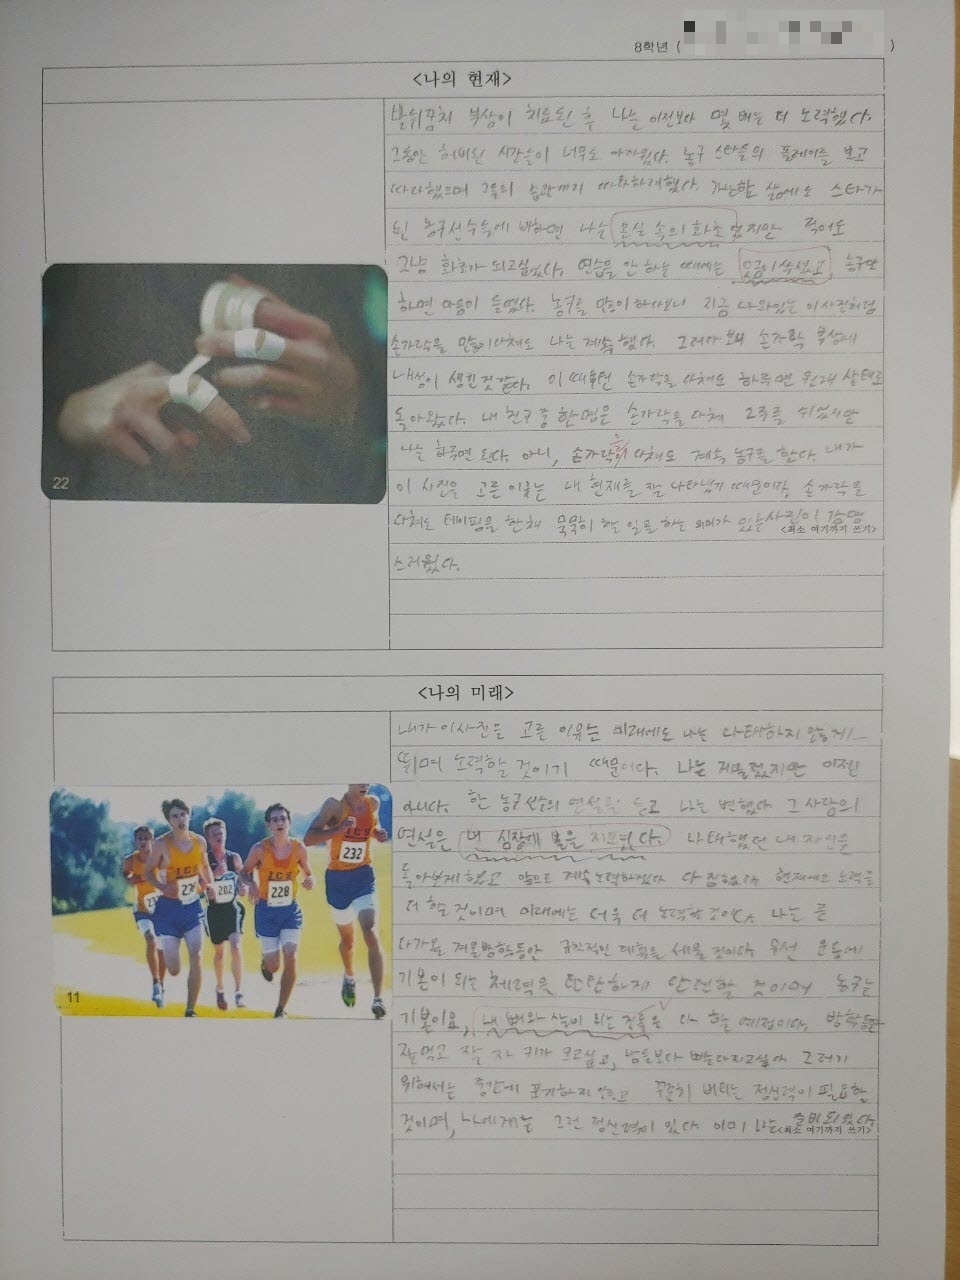 8학년 ( )
<나의 현재>
발뒤꿈치 부상이 치료된 후 나는 이전보다 몇 배는 더 노력했다.
그동안 허비된 시간들이 너무도 아까웠다. 농구 스타들의 플레이를 보고
따라했으며 그들의 습관까지 따라하려했다. 가난한 삶에도 스타가
된 농구선수들에 비하면 나는 온실 속의 화초였지만 적어도
그냥 화초가 되고싶었다. 연습을 안 하는 때에는 농구만
하면 마음이 들떴다. 농구를 많이 하다보니 지금 나와있는 이 사진처럼
손가락을 많이 다쳐도 나는 계속 했다. 그러다 보니 손가락 부상에
내성이 생긴것 같다. 이 때부턴 손가락을 다쳐도 하루면 원래 상태로
돌아왔다. 내 친구 중 한명은 손가락을 다쳐 2주를 쉬었지만
나는 하루면 된다. 아니, 손가락을 다쳐도 계속 농구를 한다. 내가
이 사진을 고른 이유는 내 현재를 잘 나타냈기 때문이다. 손가락을
다쳐도 테이핑을 한채 묵묵히 할 일을 하는 의미가 있는 사진이 감명
<최소 여기까지 쓰기>
스러웠다.
22
<나의 미래>
내가 이사진을 고른 이유는 미래에도 나는 나태하지 않게
뛰며 노력할 것이기 때문이다. 나는 게을렀지만 이젠
아니다. 한 농구선수의 연설을 듣고 나는 변했다 그 사람의
연설은 내 심장에 불을 지폈다. 나태했던 내 자신을
돌아보게 했고 앞으로 계속 노력하겠다 다짐했다 현재에도 노력을
더 할 것이며 미래에는 더욱 더 노력할 것이다. 나는 곧
다가올 겨울방학동안 규칙적인 계획을 세울 것이다. 우선 운동에
기본이 되는 체력을 단단하게 단련할 것이며 농구는
기본이요, 내 뼈와 살이 되는 것들을 다 할 예정이다. 방학동안
잘먹고 잘 자 키가 크고싶고, 남들보다 빨라지고싶다 그러기
위해서는 중간에 포기하지 않고 꾸준히 버티는 정신력이 필요할
것이며, 나에게는 그런 정신력이 있다 이미 나는 준비되었다.
<최소 여기까지 쓰기>
11
JCS
232
JCS
228
202